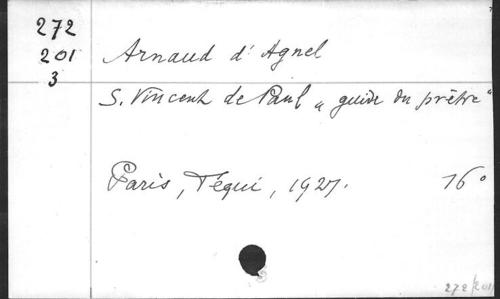 272
201
3
Arnaud d'Agnel
S. Vincent de Paul „ guide du prêtre“
Paris, Téqui, 1927. 16°
272/201